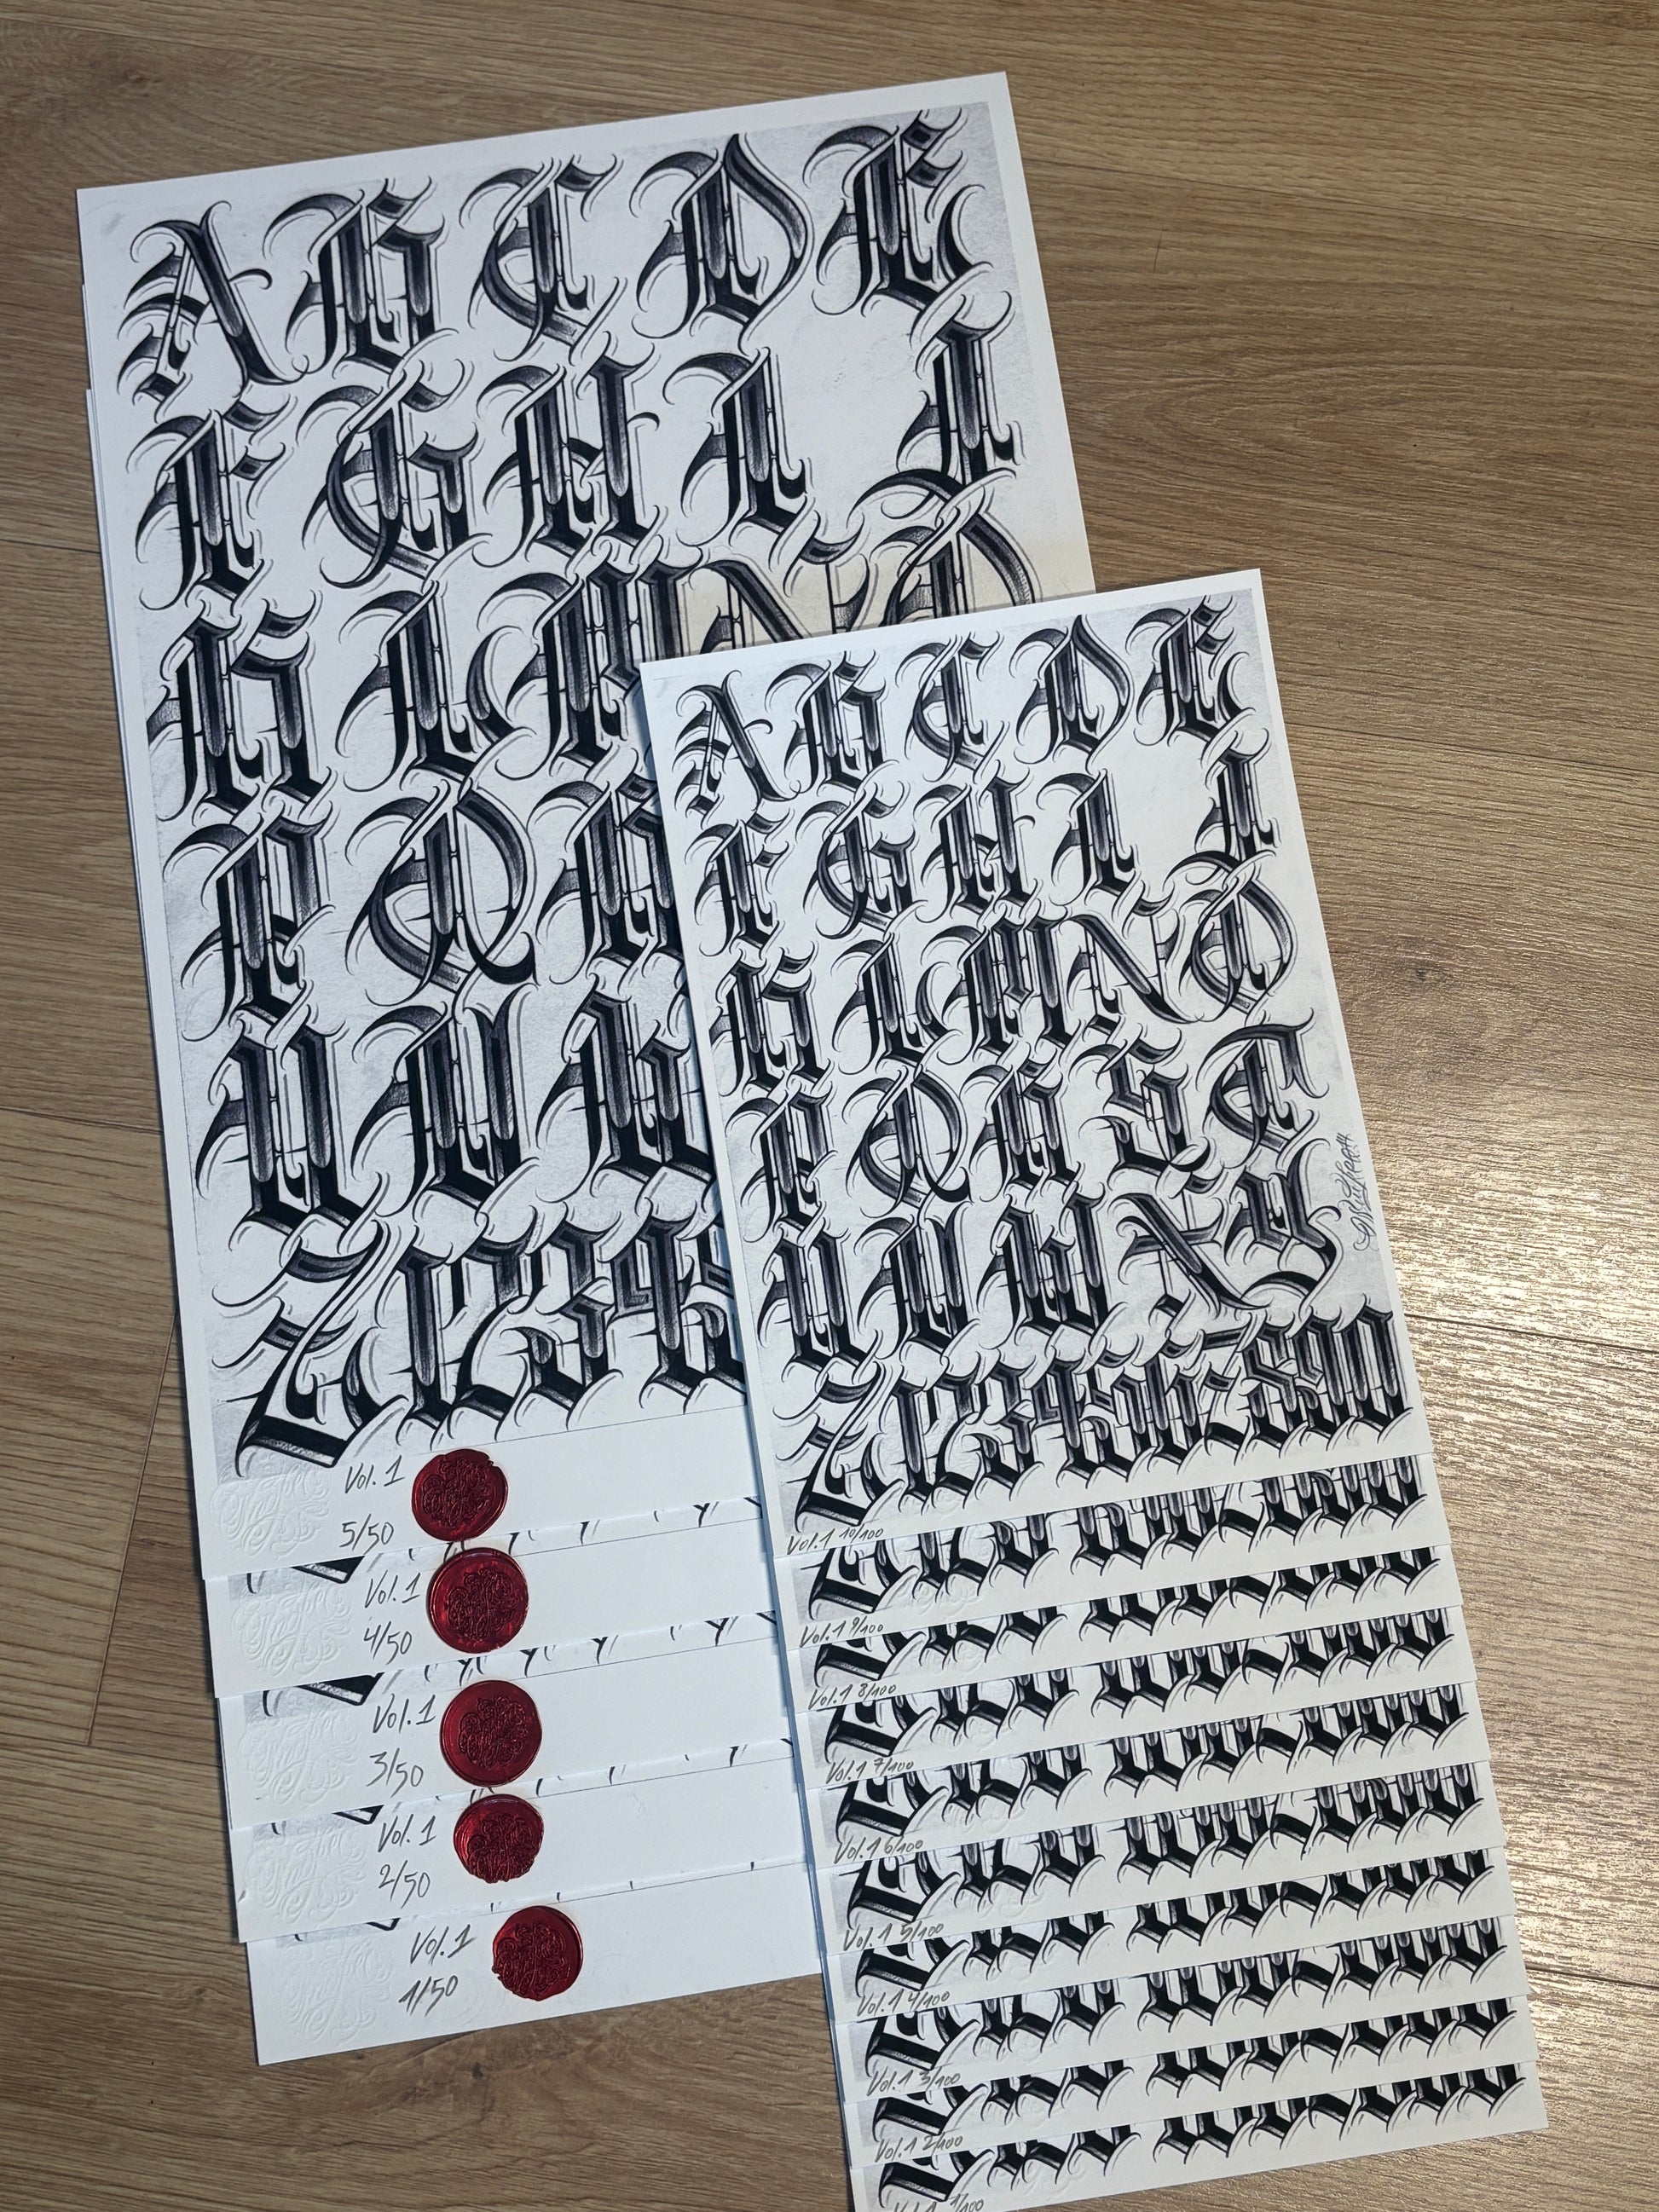 A B C D E
F G H I J
K L M N O
P Q R
U V W
Z 1 2 3 4 5
Vol. 1
5/50
Vol. 1
4/50
Vol. 1
3/50
Vol. 1
2/50
Vol. 1
1/50
A B C D E
F G H I J
K L M N O
P Q R S T
U V W X Y
Z 1 2 3 4 5 6 7 8 9 0
Vol. 1 10/100
Vol. 1 9/100
Vol. 1 8/100
Vol. 1 7/100
Vol. 1 6/100
Vol. 1 5/100
Vol. 1 4/100
Vol. 1 3/100
Vol. 1 2/100
Vol. 1 1/100